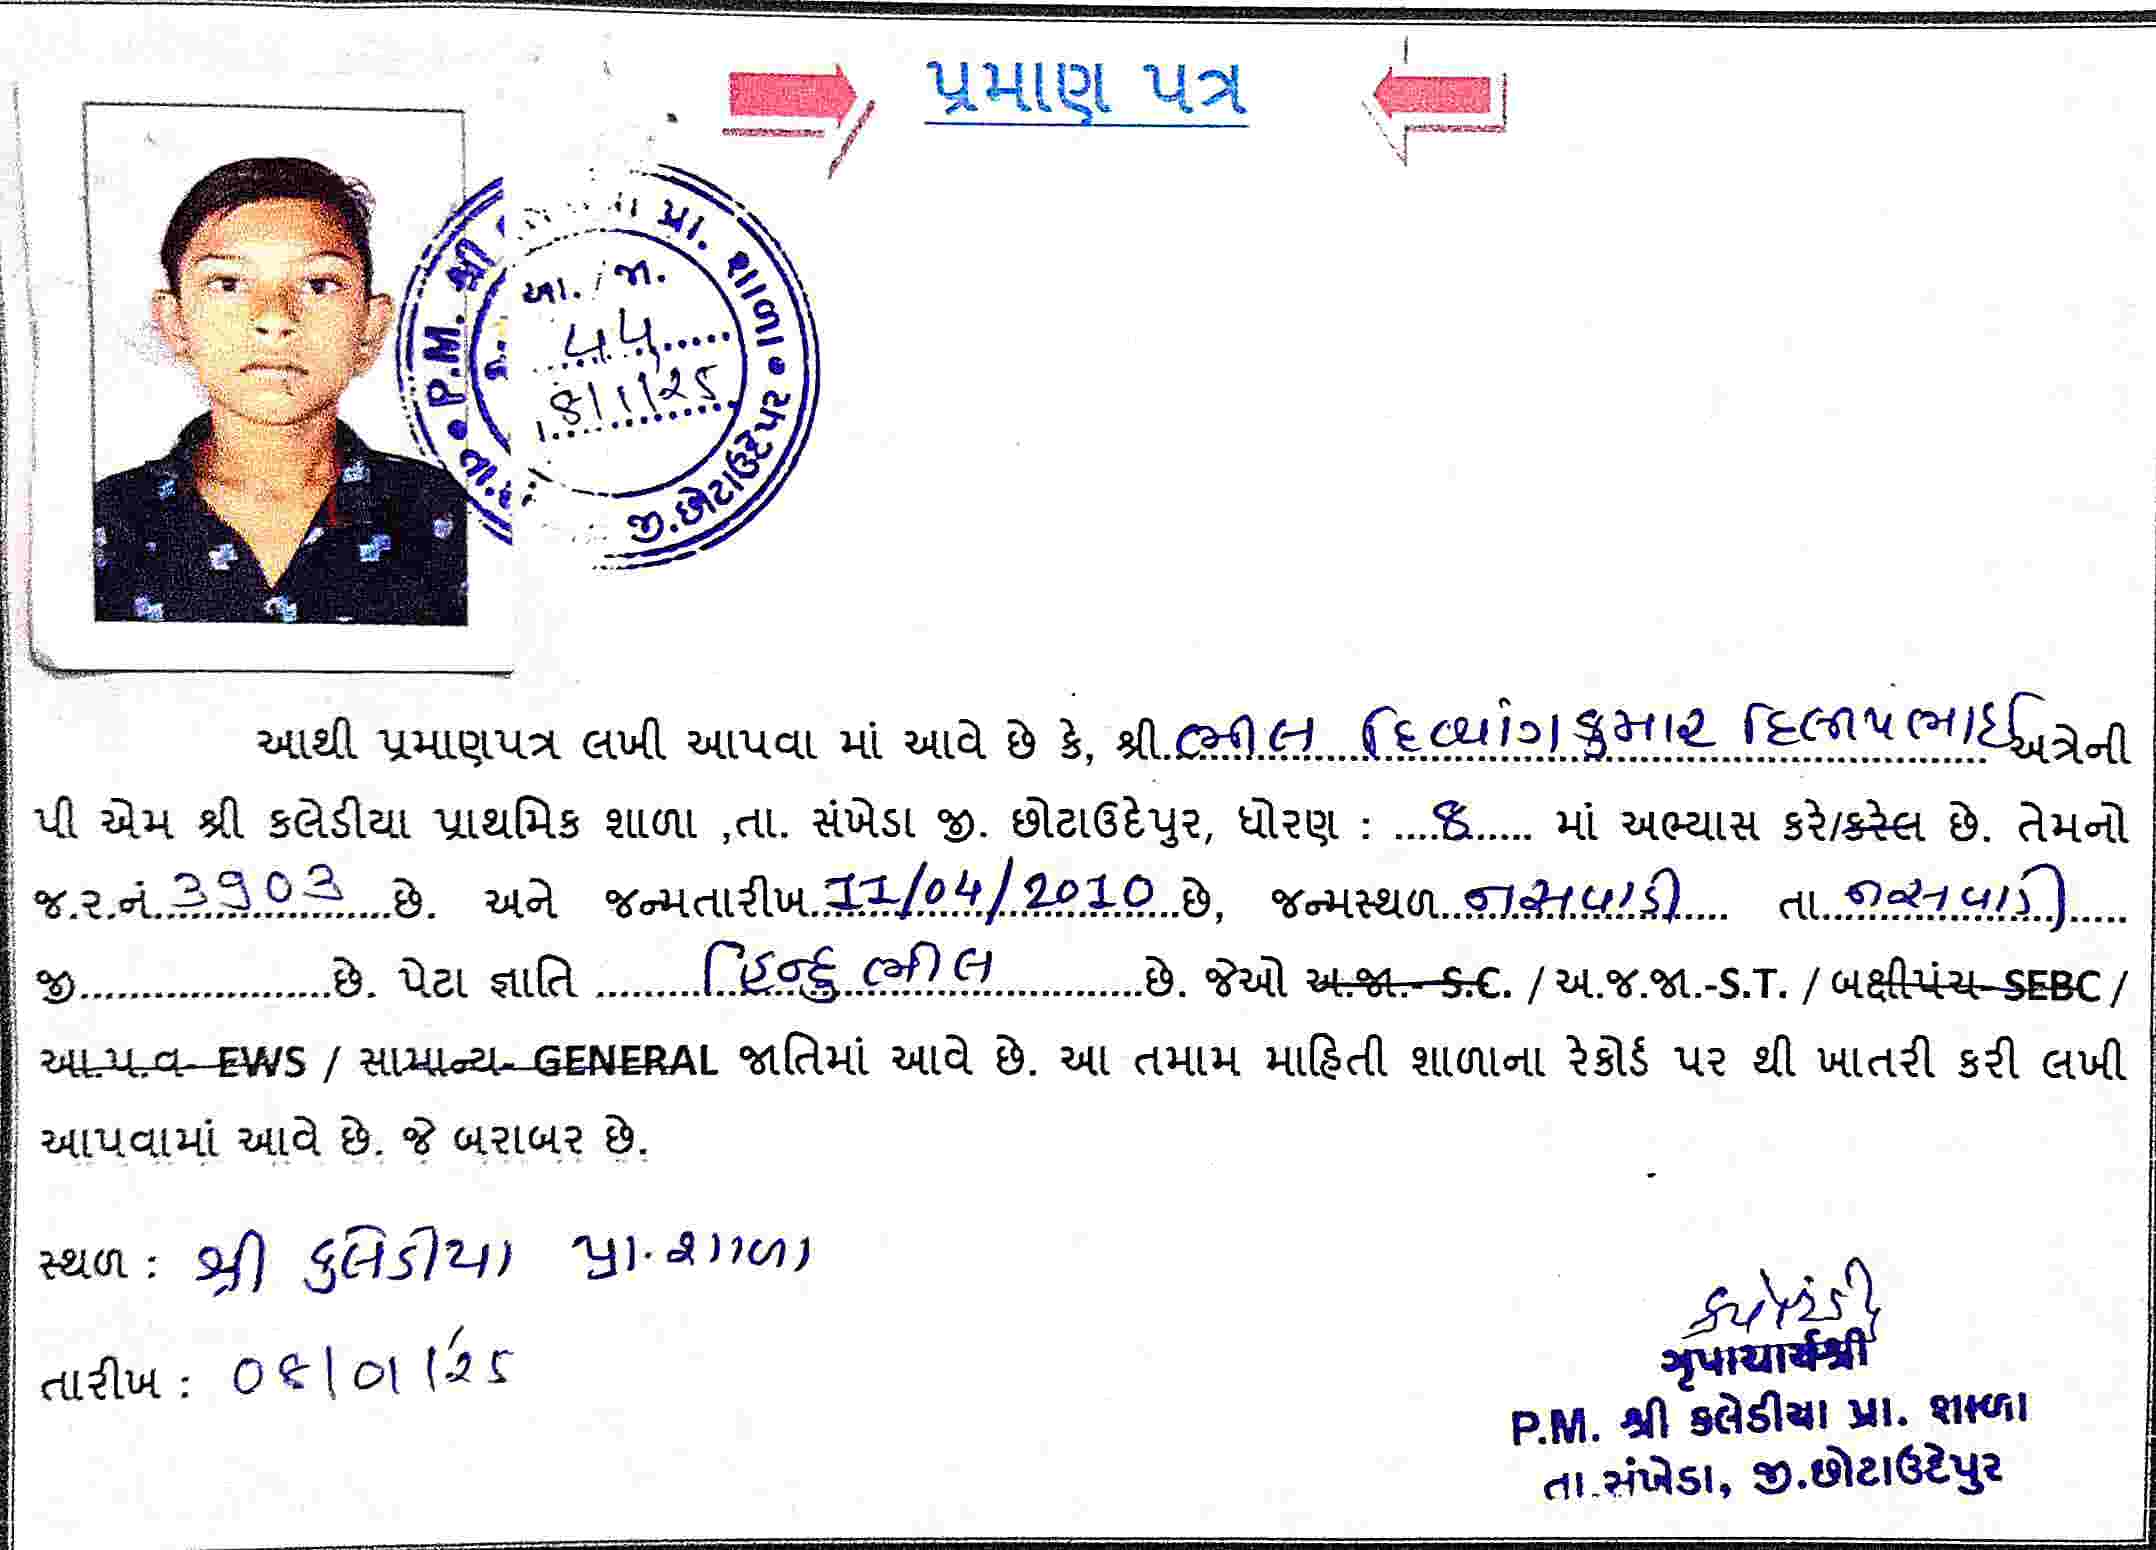 પ્રમાણ પત્ર
P.M. શ્રી પ્રા. શાળા
આ. / જા.
૫૫
8/1/25
જી.છોટાઉદેપુર
આથી પ્રમાણપત્ર લખી આપવા માં આવે છે કે, શ્રી ભીલ દિવ્યાંગકુમાર દિલીપભાઈ અત્રેની
પી એમ શ્રી કલેડીયા પ્રાથમિક શાળા ,તા. સંખેડા જી. છોટાઉદેપુર, ધોરણ : ....8..... માં અભ્યાસ કરે/કરેલ છે. તેમનો
જ.ર.નં. 3903 છે. અને જન્મતારીખ 11/04/2010 છે, જન્મસ્થળ નસવાડી તા. નસવાડી
જી.....................છે. પેટા જ્ઞાતિ હિન્દુ ભીલ છે. જેઓ અ.જા.- S.C. / અ.જ.જા.-S.T. / બક્ષીપંચ- SEBC /
આ.પ.વ- EWS / સામાન્ય- GENERAL જાતિમાં આવે છે. આ તમામ માહિતી શાળાના રેકોર્ડ પર થી ખાતરી કરી લખી
આપવામાં આવે છે. જે બરાબર છે.
સ્થળ : શ્રી કલેડીયા પ્રા. શાળા
તારીખ : 08/01/25
P.M. શ્રી કલેડીયા પ્રા. શાળા
તા.સંખેડા, જી.છોટાઉદેપુર